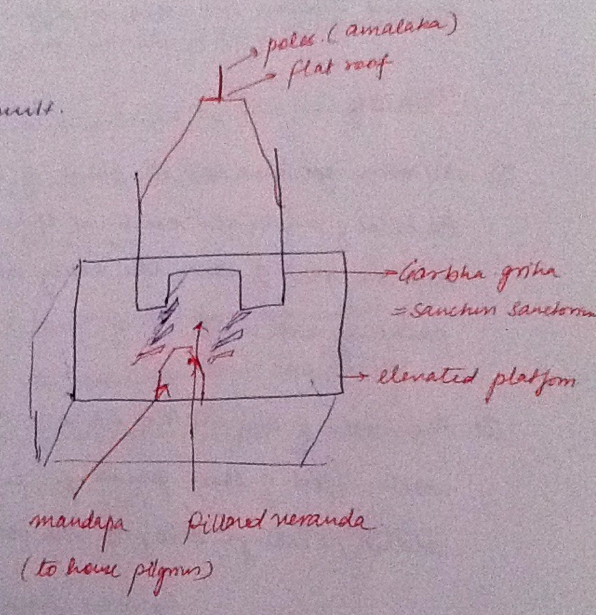 poles (amalaka)
flat roof
Garbha griha
= Sanctum Sanctorum
elevated platform
mandapa
(to house pilgrims)
pillared veranda